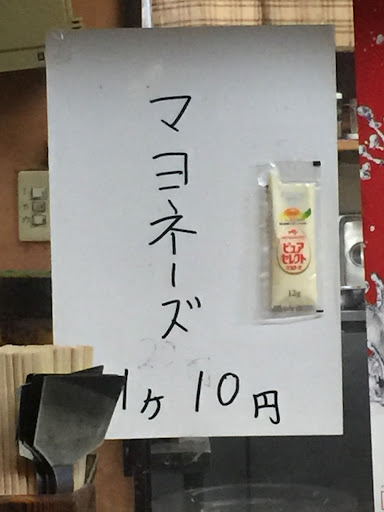 マヨネーズ
1ヶ 10円
ピュア
セレクト
マヨネーズ
12g